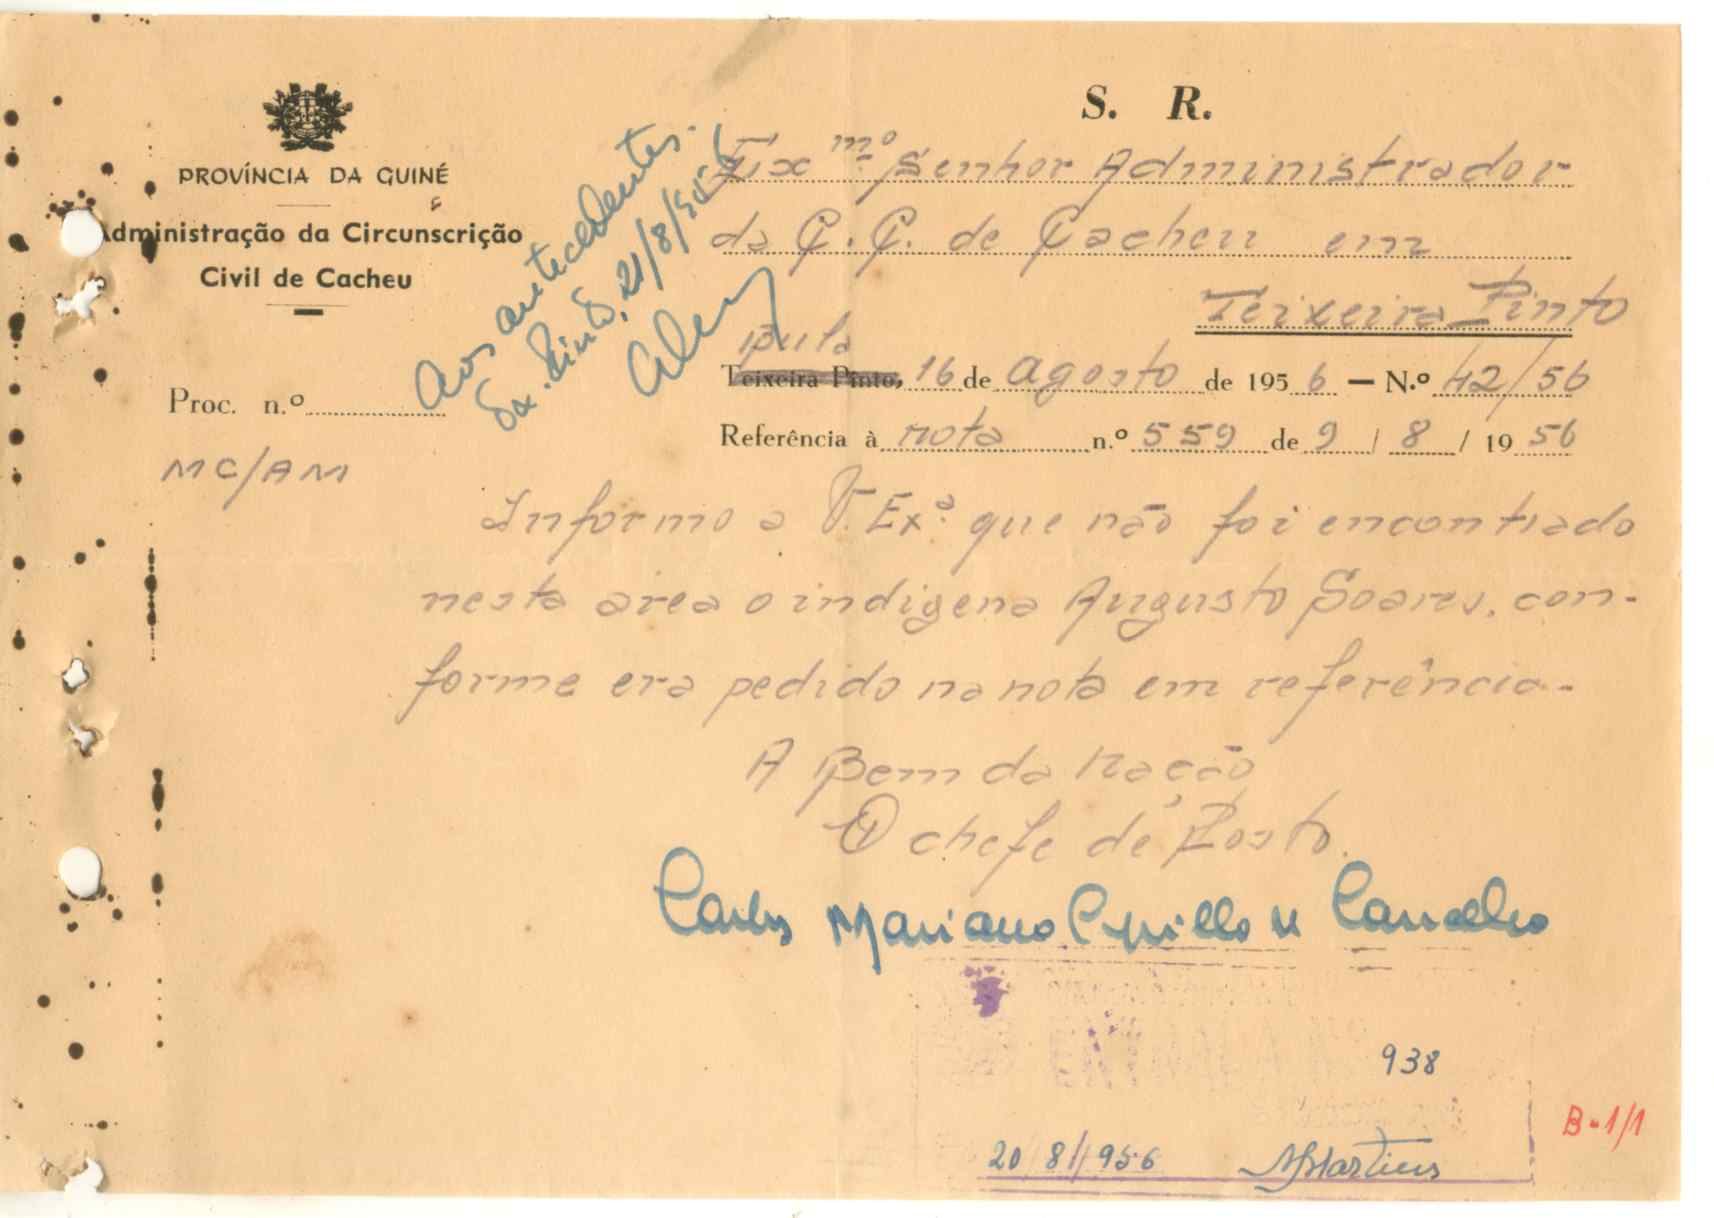 S. R.
PROVÍNCIA DA GUINÉ
Administração da Circunscrição
Civil de Cacheu
Aos antecedentes.
Pinto, 21/8/956
Exmº Senhor Administrador
da C. C. de Cacheu em
Teixeira Pinto
Bula
Teixeira Pinto, 16 de agosto de 1956 — N.º 42/56
Proc. n.º
Referência à nota n.º 559 de 9 / 8 / 1956
MC/AM
Informo a V. Exª. que não foi encontrado
nesta area o indigena Augusto Soares, con-
forme era pedido na nota em referência.-
A Bem da Nação
O chefe de Posto.
Carlos Mariano Cyrillo de Carvalho
ENTRADA
938
20/8/956 Martins
B-1/1